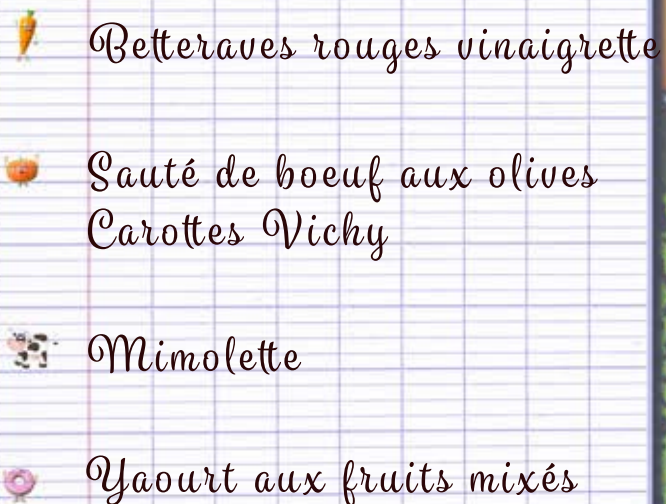 Betteraves rouges vinaigrette
Sauté de boeuf aux olives
Carottes Vichy
Mimolette
Yaourt aux fruits mixés